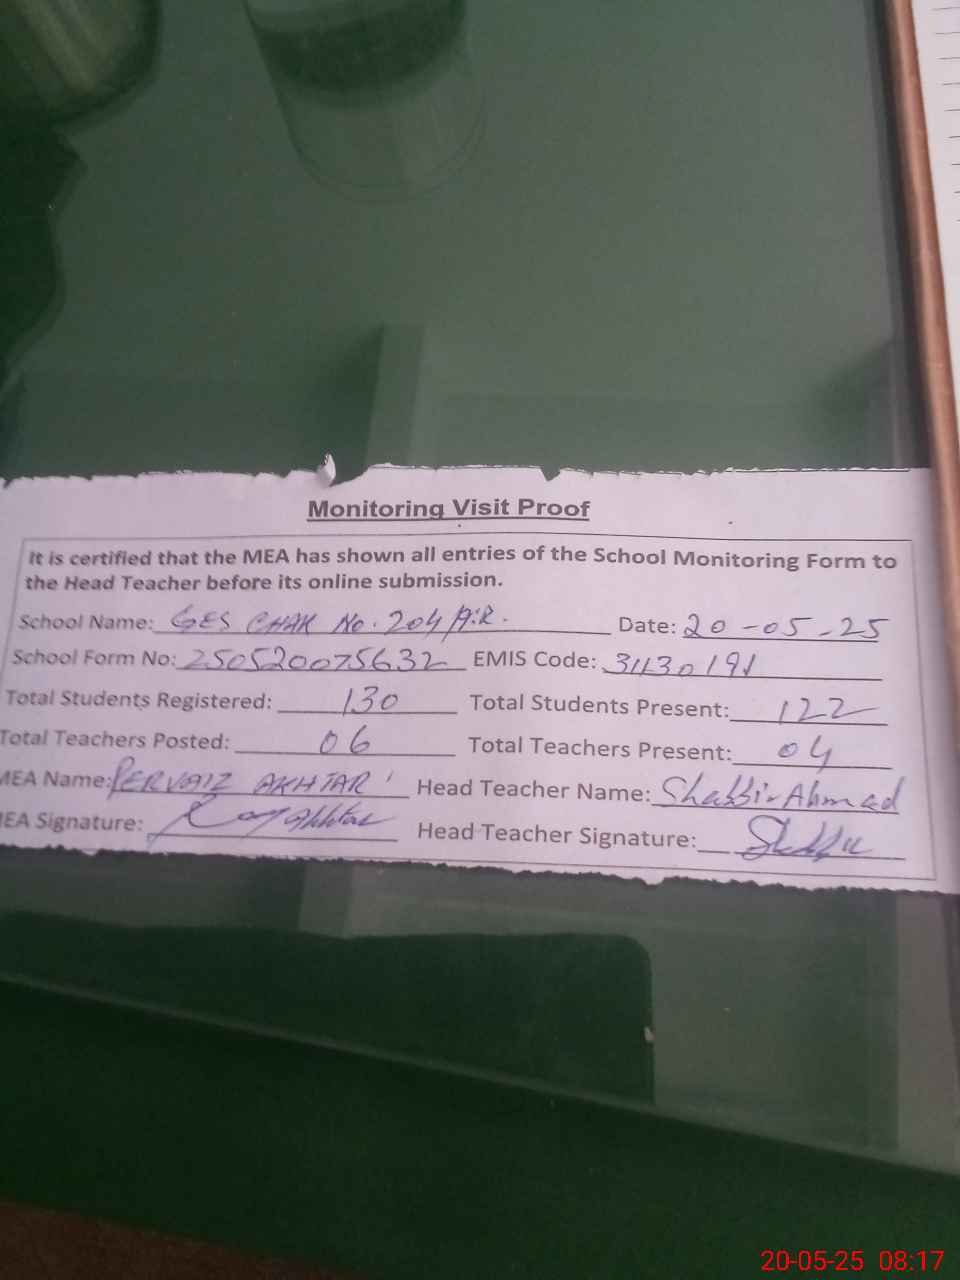 Monitoring Visit Proof
It is certified that the MEA has shown all entries of the School Monitoring Form to
the Head Teacher before its online submission.
School Name: GES CHAK No. 204/9.R. Date: 20-05-25
School Form No: 250520075632 EMIS Code: 31130191
Total Students Registered: 130 Total Students Present: 122
Total Teachers Posted: 06 Total Teachers Present: 04
MEA Name: PERVAIZ AKHTAR Head Teacher Name: Shabbir Ahmad
MEA Signature: Head Teacher Signature:
20-05-25 08:17